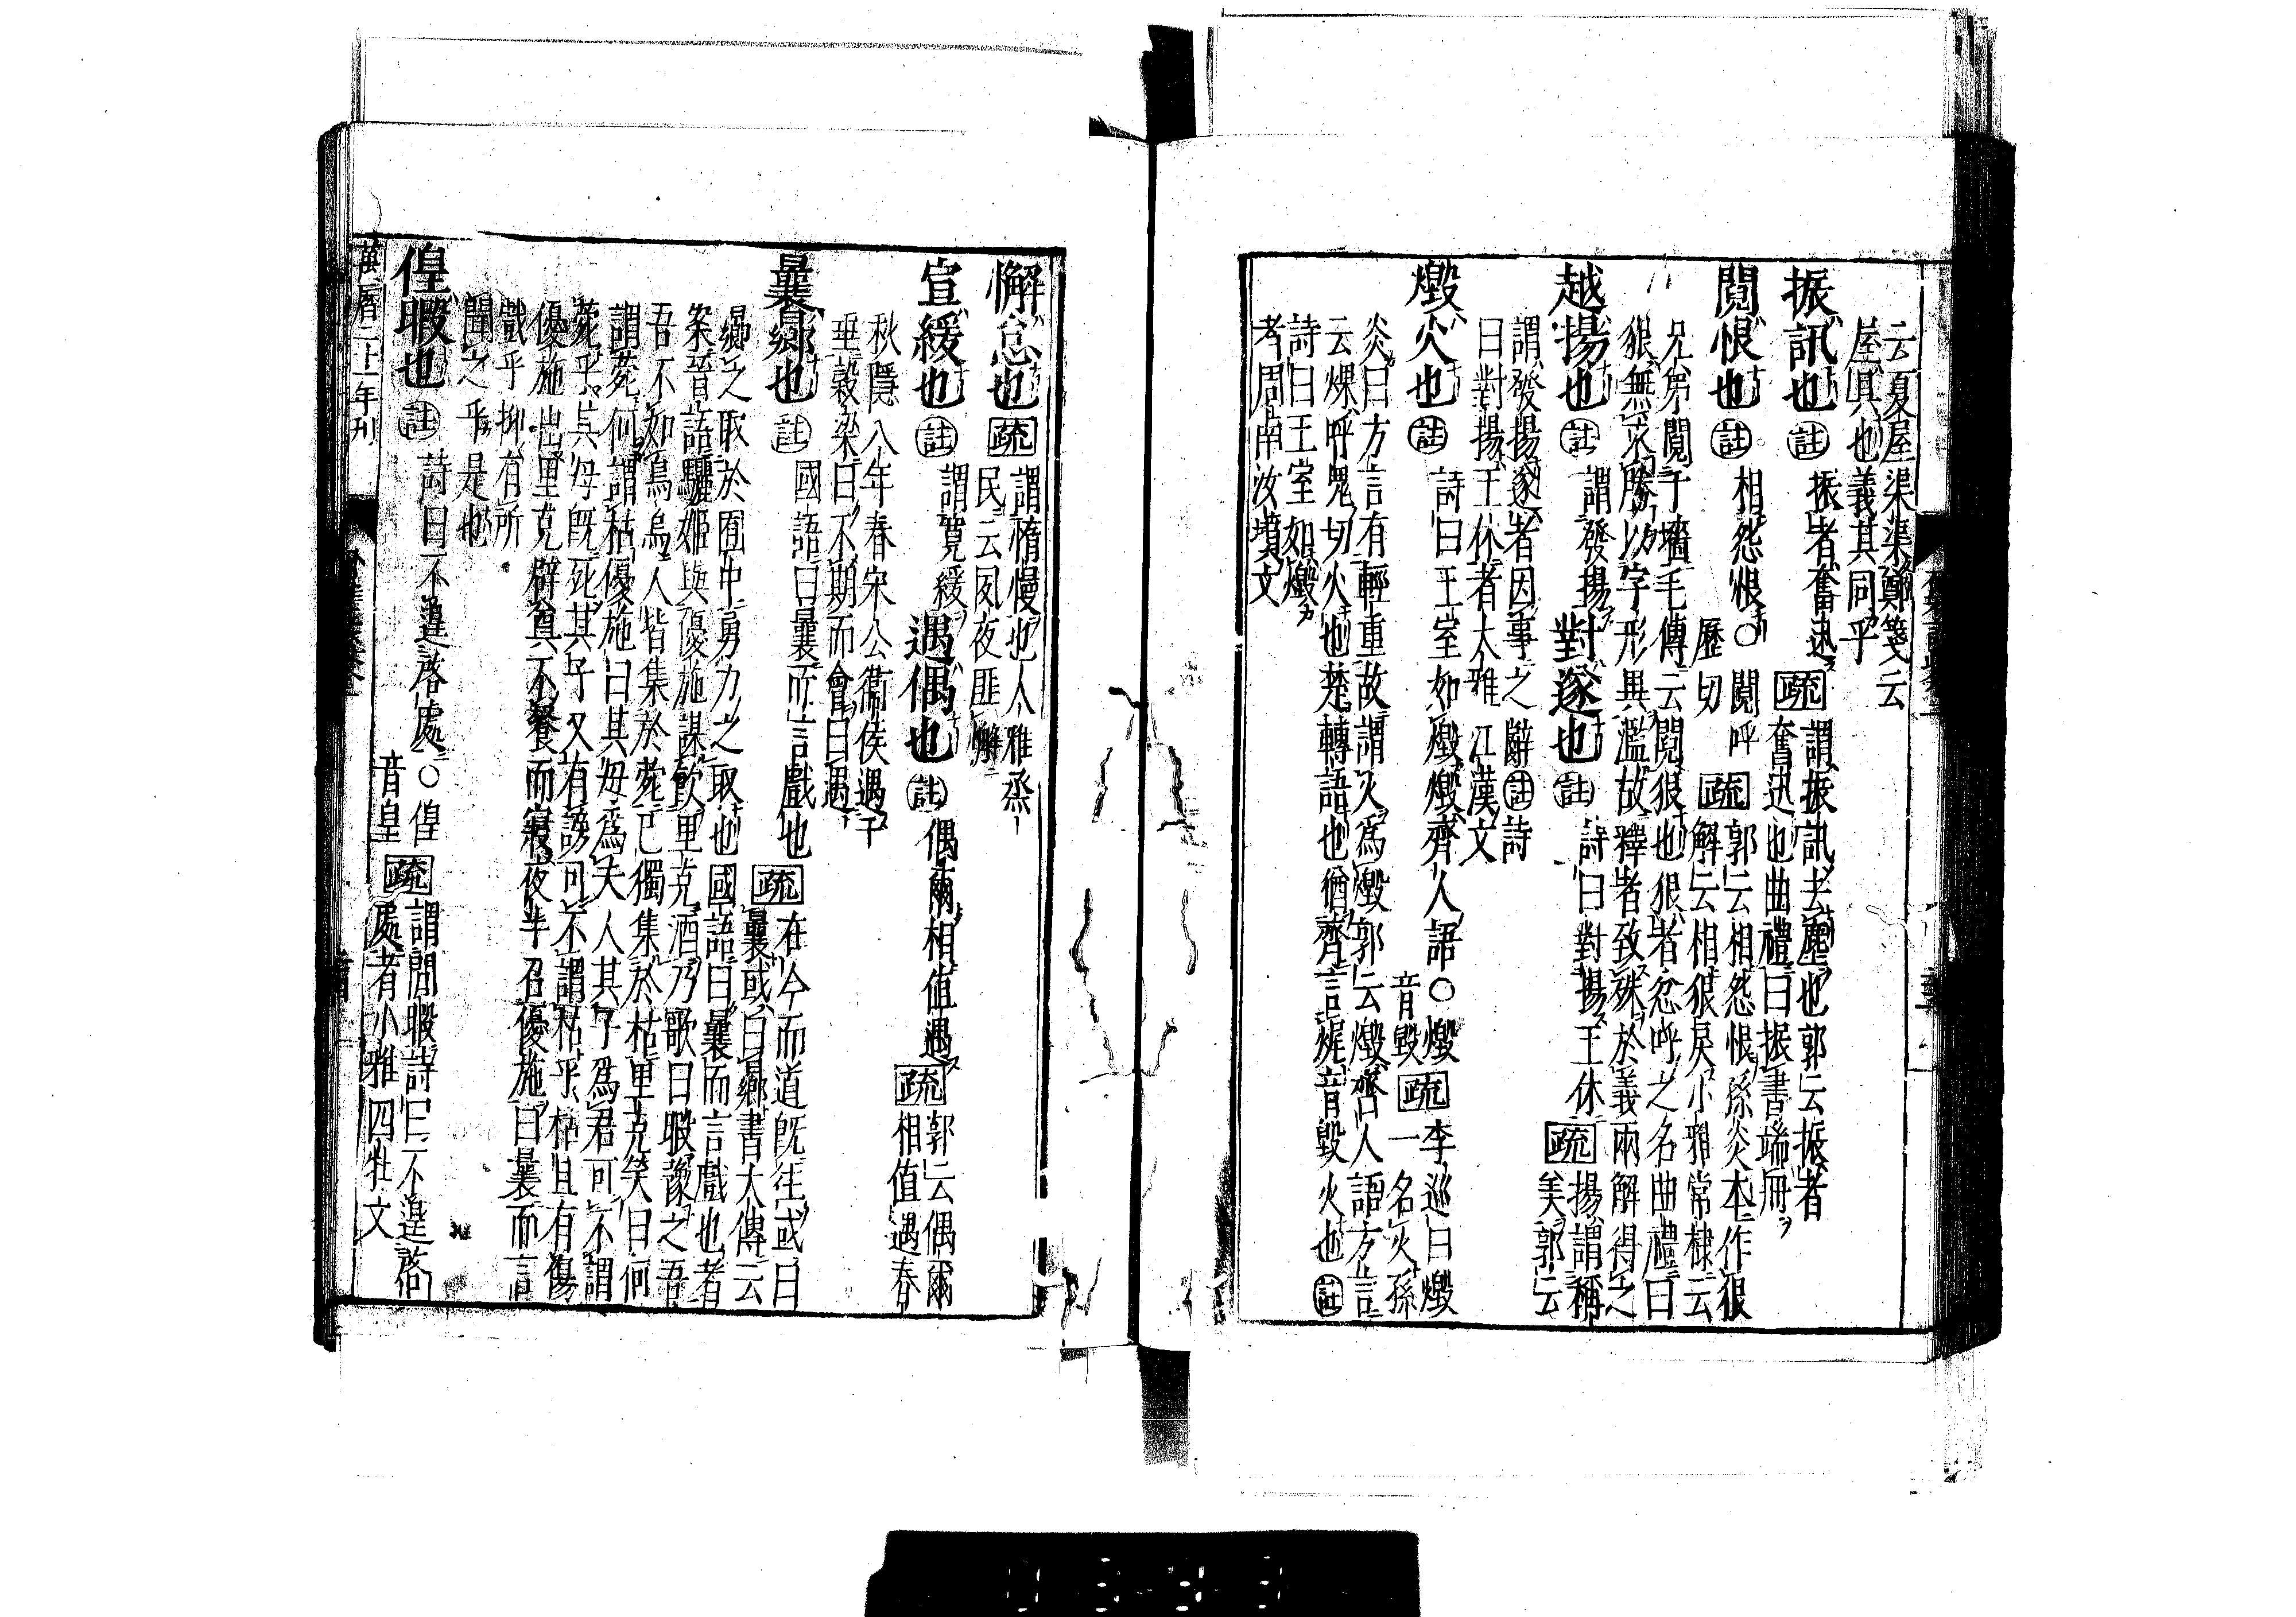 云夏屋渠渠鄭箋云
屋具也義其同乎
振訊也 註 振者奮迅 疏 謂振訊去塵也郭云振者
奮迅也曲禮曰振書端冊
鬩恨也 註 相怨恨〇鬩呼
歷切 疏 郭云相怨恨孫炎本作很
解云相很戾小雅常棣云
兄弟鬩于墻毛傳云鬩很也很者忿呼之名曲禮曰
狠無求勝以字形異濫故釋者致殊於義兩解得之
越揚也 註 謂發揚 對遂也 註 詩曰對揚王休 疏 揚謂稱
美郭云
謂發揚遂者因事之辭註詩
曰對揚王休者大雅江漢文
燬火也 註 詩曰王室如燬燬齊人語〇燬
音毀 疏 李巡曰燬
一名火孫
炎曰方言有輕重故謂火爲燬郭云燬齊人語方言
云煤呼鬼切火也楚轉語也猶齊言㷄音毀火也註
詩曰王室如燬
者周南汝墳文
懈怠也 疏 謂惰慢也大雅烝
民云夙夜匪懈
宣緩也 註 謂寬緩 遇偶也 註 偶爾相值遇 疏 郭云偶爾
相值遇春
秋隱八年春宋公衞侯遇于
垂穀梁曰不期而會曰遇
曩曏也 註 國語曰曩而言戲也 疏 在今而道旣往或曰
曩或曰曏書大傳云
曏之取於囿中勇力之取也國語曰曩而言戲也者
案晉語驪姬與優施謀飮里克酒乃歌曰暇豫之吾
吾不如烏烏人皆集於菀已獨集於枯里克笑曰何
謂菀何謂枯優施曰其母爲夫人其子爲君可不謂
菀乎其母旣死其子又有謗可不謂枯乎枯且有傷
優施出里克辟奠不餐而寢夜半召優施曰曩而言
戲乎抑有所
聞之乎是也
偟暇也 註 詩曰不遑啓處〇偟
音皇 疏 謂閒暇詩曰不遑啓
處者小雅四牡文
萬曆二十一年刊